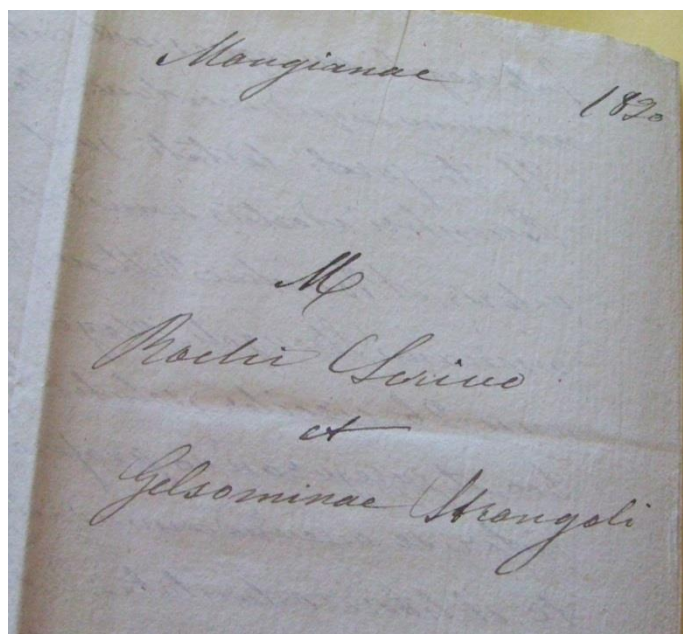 Mangianae 1820
M
Rochi Scrivo
et
Gelsominae Strangoli